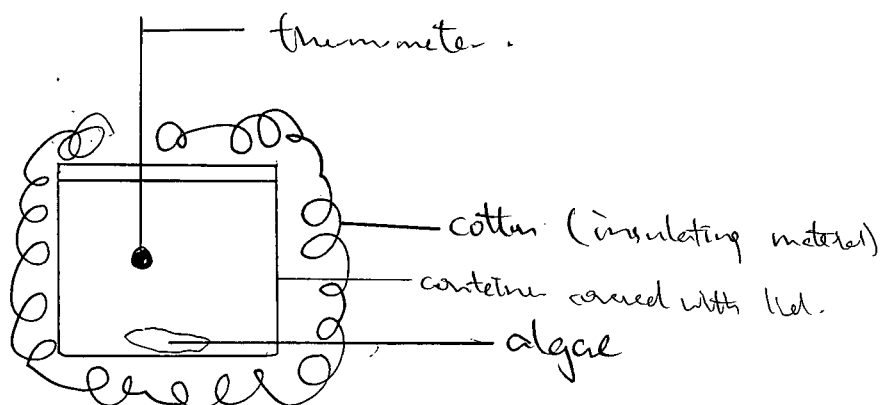 thermometer.
cotton (insulating material)
container covered with lid.
algae